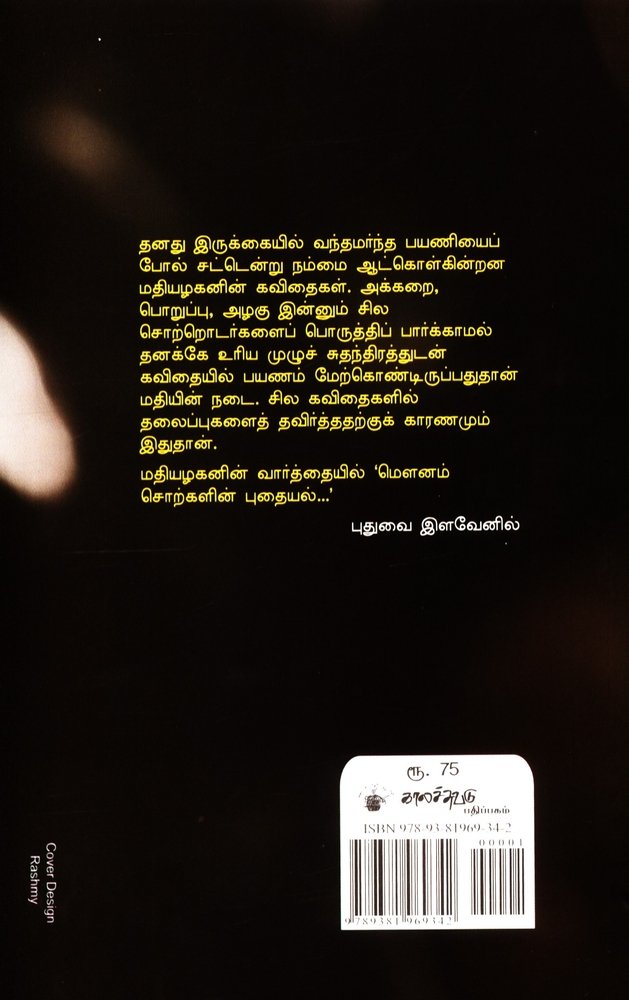 தனது இருக்கையில் வந்தமர்ந்த பயணியைப்
போல் சட்டென்று நம்மை ஆட்கொள்கின்றன
மதியழகனின் கவிதைகள். அக்கறை,
பொறுப்பு, அழகு இன்னும் சில
சொற்றொடர்களைப் பொருத்திப் பார்க்காமல்
தனக்கே உரிய முழுச் சுதந்திரத்துடன்
கவிதையில் பயணம் மேற்கொண்டிருப்பதுதான்
மதியின் நடை. சில கவிதைகளில்
தலைப்புகளைத் தவிர்த்ததற்குக் காரணமும்
இதுதான்.
மதியழகனின் வார்த்தையில் ‘மௌனம்
சொற்களின் புதையல்...’
புதுவை இளவேனில்
ரூ. 75
காலச்சுவடு
பதிப்பகம்
ISBN 978-93-81969-34-2
00001
9789381 969342
Cover Design
Rashmy